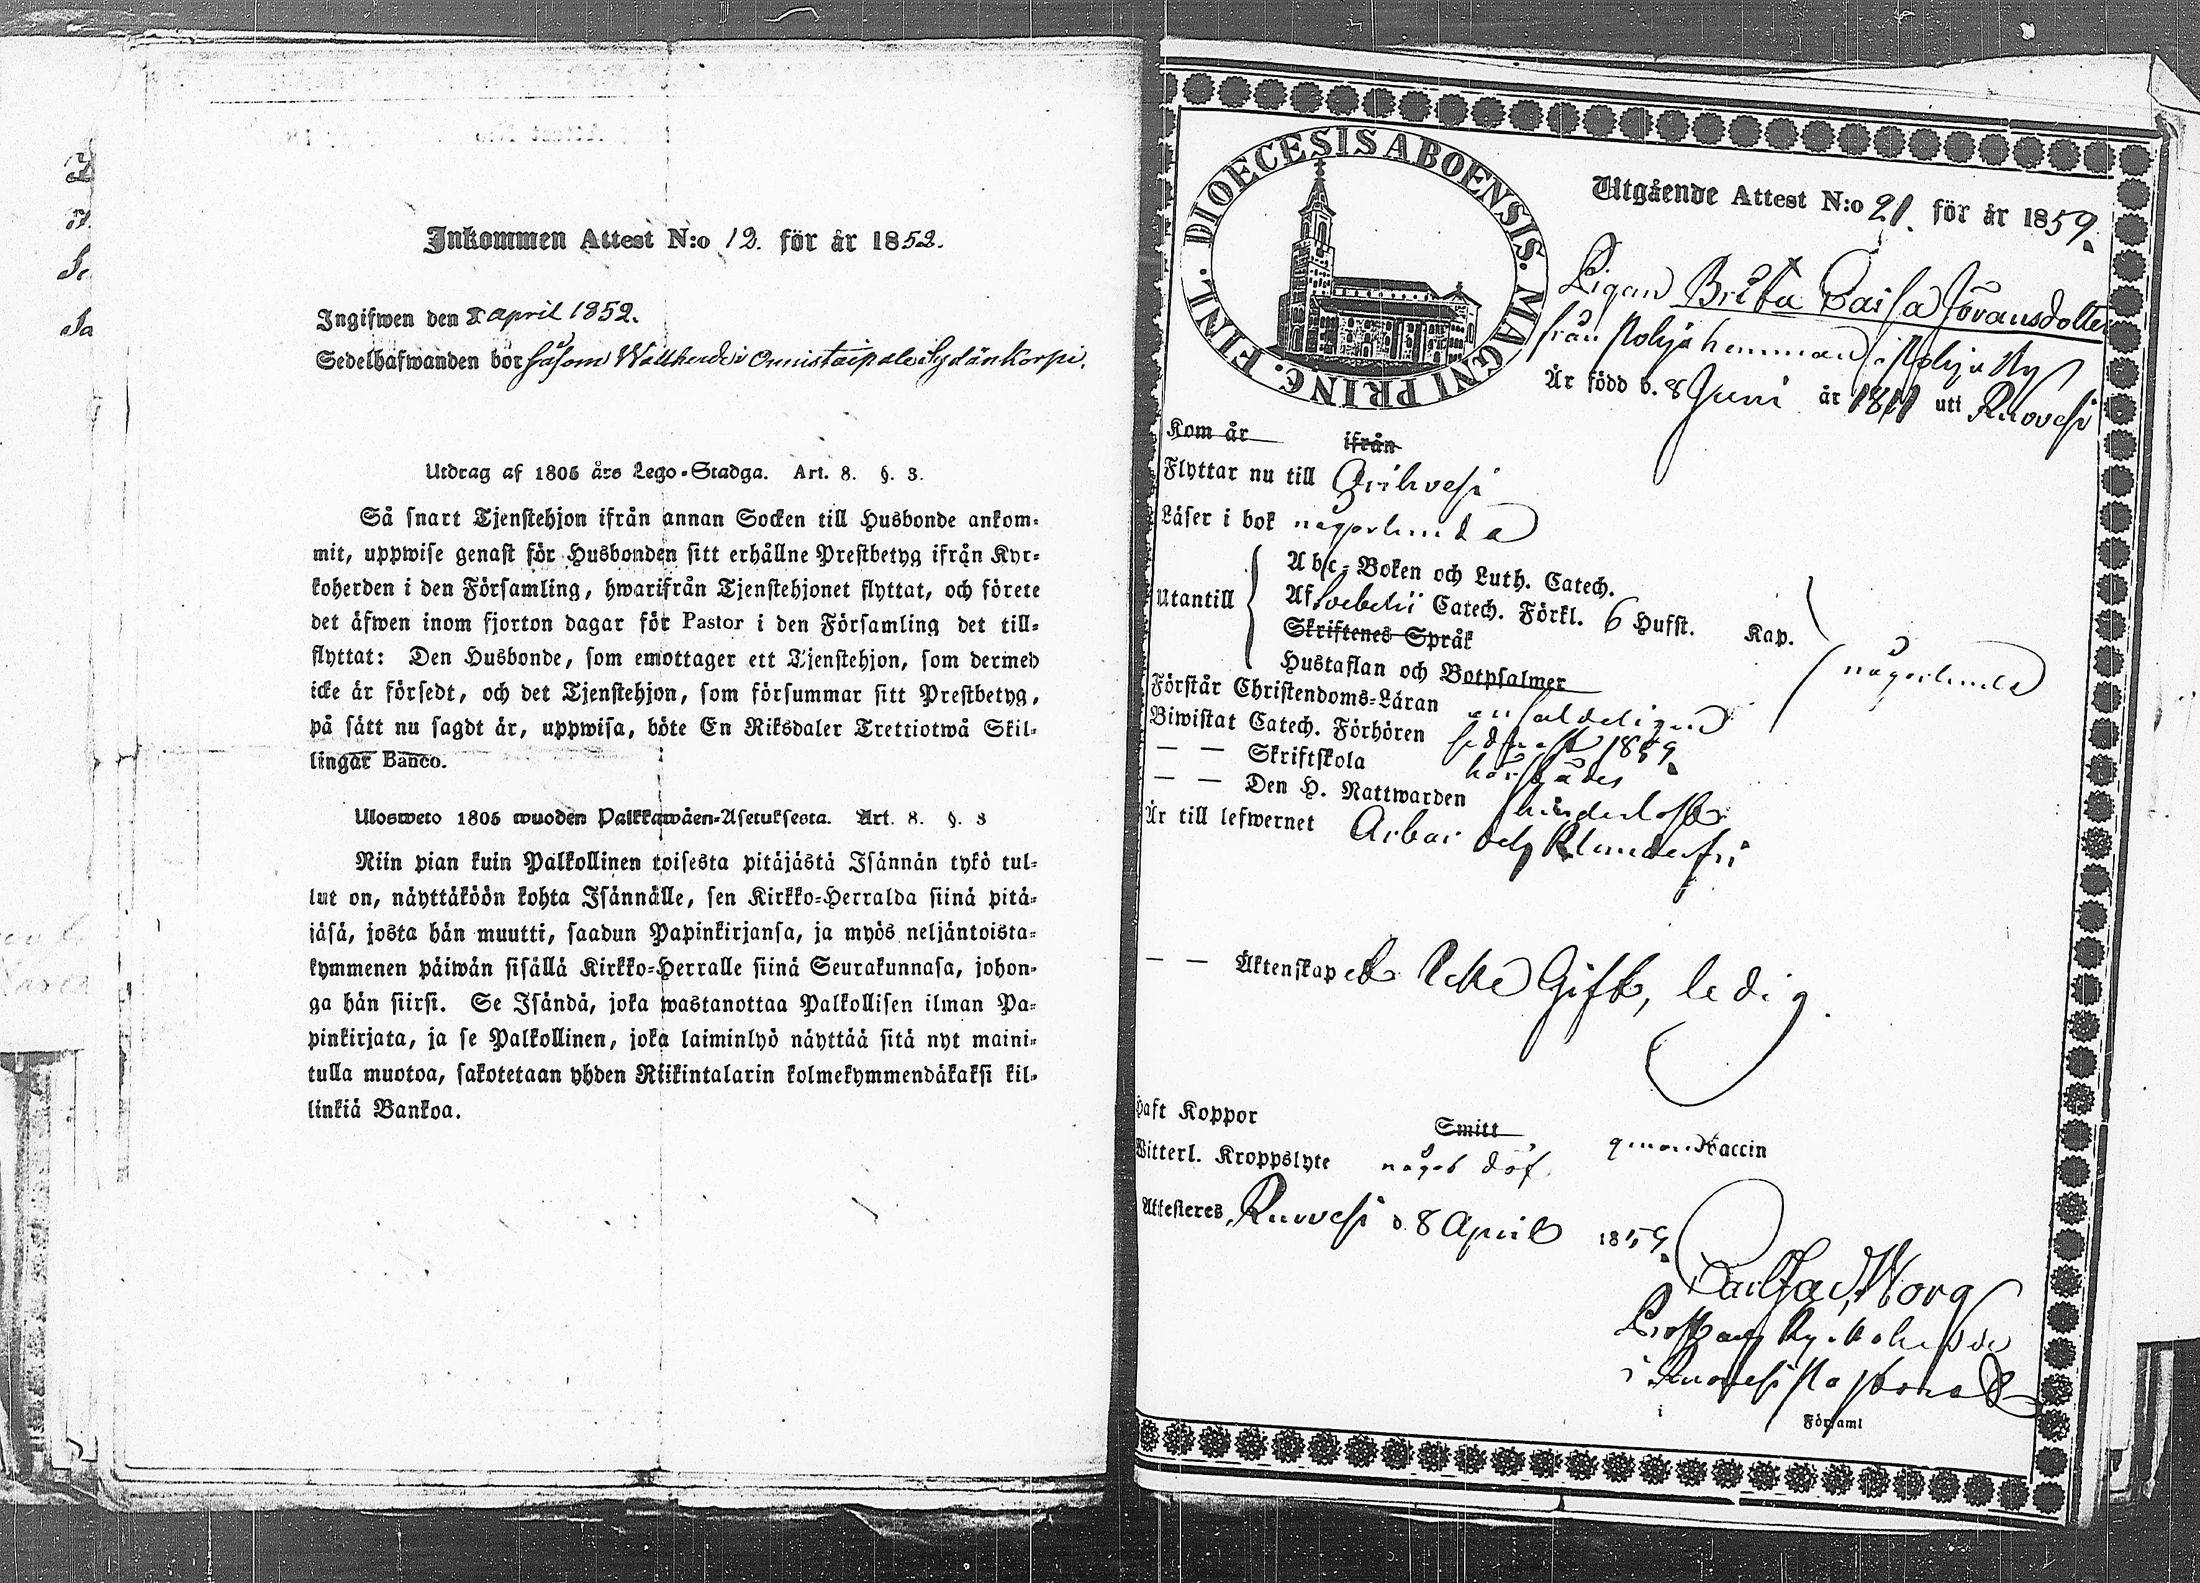 Inkommen Attest N:o 12. för år 1852.
Ingifwen den 8 april 1852.
Sedelhafwanden bor såsom Wallherde i Onnistaipale Sydänkorpi.
Utdrag af 1805 års Lego-Stadga. Art. 8. §. 3.
Så snart Tjenstehjon ifrån annan Socken till Husbonde ankom-
mit, uppwise genast för Husbonden sitt erhållne Prestbetyg ifrån Kyr-
koherden i den Församling, hwarifrån Tjenstehjonet flyttat, och förete
det äfwen inom fjorton dagar för Pastor i den Församling det till-
flyttat: Den Husbonde, som emottager ett Tjenstehjon, som dermed
icke är försedt, och det Tjenstehjon, som försummar sitt Prestbetyg,
på sätt nu sagdt är, uppwisa, böte En Riksdaler Trettiotwå Skil-
lingar Banco.
Ulosweto 1805 wuoden Palkkawäen-Asetuksesta. Art. 8. §. 3
Niin pian kuin Palkollinen toisesta pitäjästä Isännän tykö tul-
lut on, näyttäköön kohta Isännälle, sen Kirkko-Herralda siinä pitä-
jäsä, josta hän muutti, saadun Papinkirjansa, ja myös neljäntoista-
kymmenen päiwän sisällä Kirkko-Herralle siinä Seurakunnasa, johon-
ga hän siirsi. Se Isändä, joka wastanottaa Palkollisen ilman Pa-
pinkirjata, ja se Palkollinen, joka laiminlyö näyttää sitä nyt maini-
tulla muotoa, sakotetaan yhden Riikintalarin kolmekymmendäkaksi kil-
linkiä Bankoa.
DIOECESIS ABOENSIS. MAGNI PRINC. FINL.
Utgående Attest N:o 21. för år 1859.
Pigan Brita Caisa Göransdotter
från Pohja hemman i Pohja by
Är född d. 8 Juni år 1811 uti Ruovesi
Kom år ifrån
Flyttar nu till
Läser i bok någorlunda
Utantill
Abc-Boken och Luth. Catech.
Af Svebelii Catech. Förkl. 6 Hufst. Kap.
Skriftenes Språk
Hustaflan och Botpsalmer
någorlunda
Förstår Christendoms-Läran enfaldeligen
Biwistat Catech. Förhören sednast 1859.
— — Skriftskola härstädes
— — Den H. Nattwarden
Är till lefwernet
— — Äktenskapet Icke Gift, ledig.
Haft Koppor Smitt genom Vaccin
Witterl. Kroppslyte något döf
Attesteras, Ruovesi d. 8 April 1859.
Carl Jac. Worg
Prost och Kyrkoherde
i Ruovesi Pastorat
i Församl